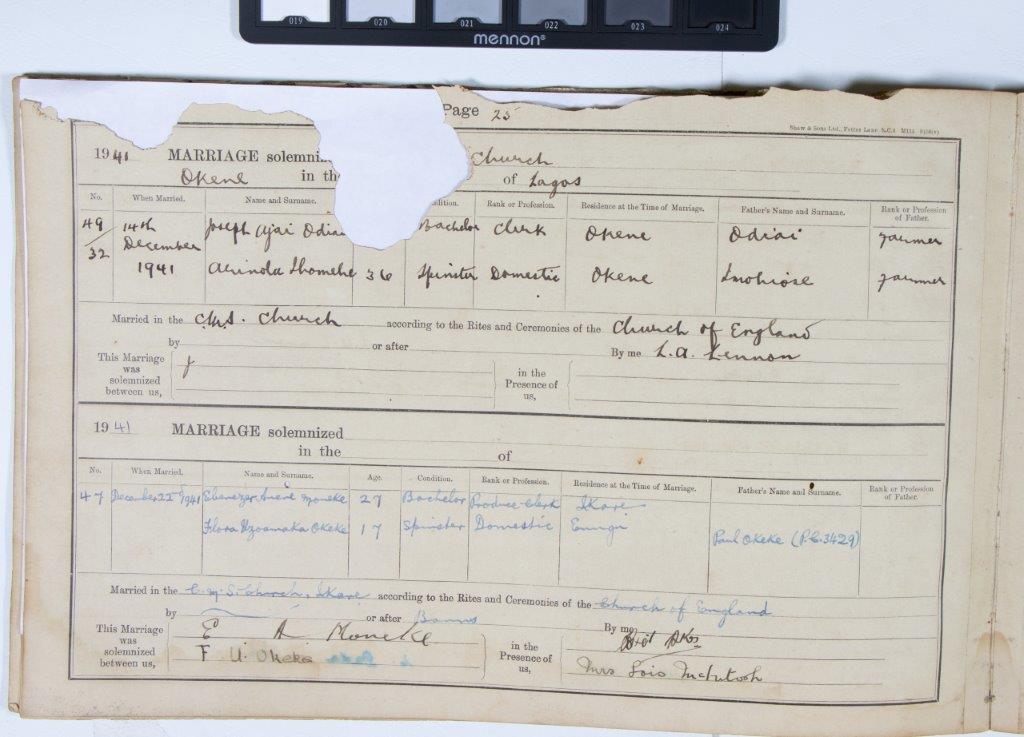 019 020 021 022 023 024
mennon®
Page 25
Shaw & Sons Ltd., Fetter Lane
1941 MARRIAGE solemniz Church
Okene in the of Lagos
No. When Married. Name and Surname. dition. Rank or Profession. Residence at the Time of Marriage. Father's Name and Surname. Rank or Profession of Father.
49/32 14th December 1941 Joseph Ajai Odiai Bachelor Clerk Okene Odiai Farmer
36 Spinster Domestic Okene Farmer
Married in the C.M.S. Church according to the Rites and Ceremonies of the Church of England
by or after By me L.A. Lennon
This Marriage was solemnized between us, in the Presence of us,
1941 MARRIAGE solemnized
in the of
No. When Married. Name and Surname. Age. Condition. Rank or Profession. Residence at the Time of Marriage. Father's Name and Surname. Rank or Profession of Father.
47 December 22nd 1941 Ebenezer Moneke 27 Bachelor Produce Clerk Ikare
Flora Uzoamaka Okeke 17 Spinster Domestic Paul Okeke (P.C. 3429)
Married in the C.M.S. Church, Ikare according to the Rites and Ceremonies of the Church of England
by or after Banns By me
This Marriage was solemnized between us, E A Moneke in the Presence of us,
F. U. Okeke Mrs Lois McIntosh